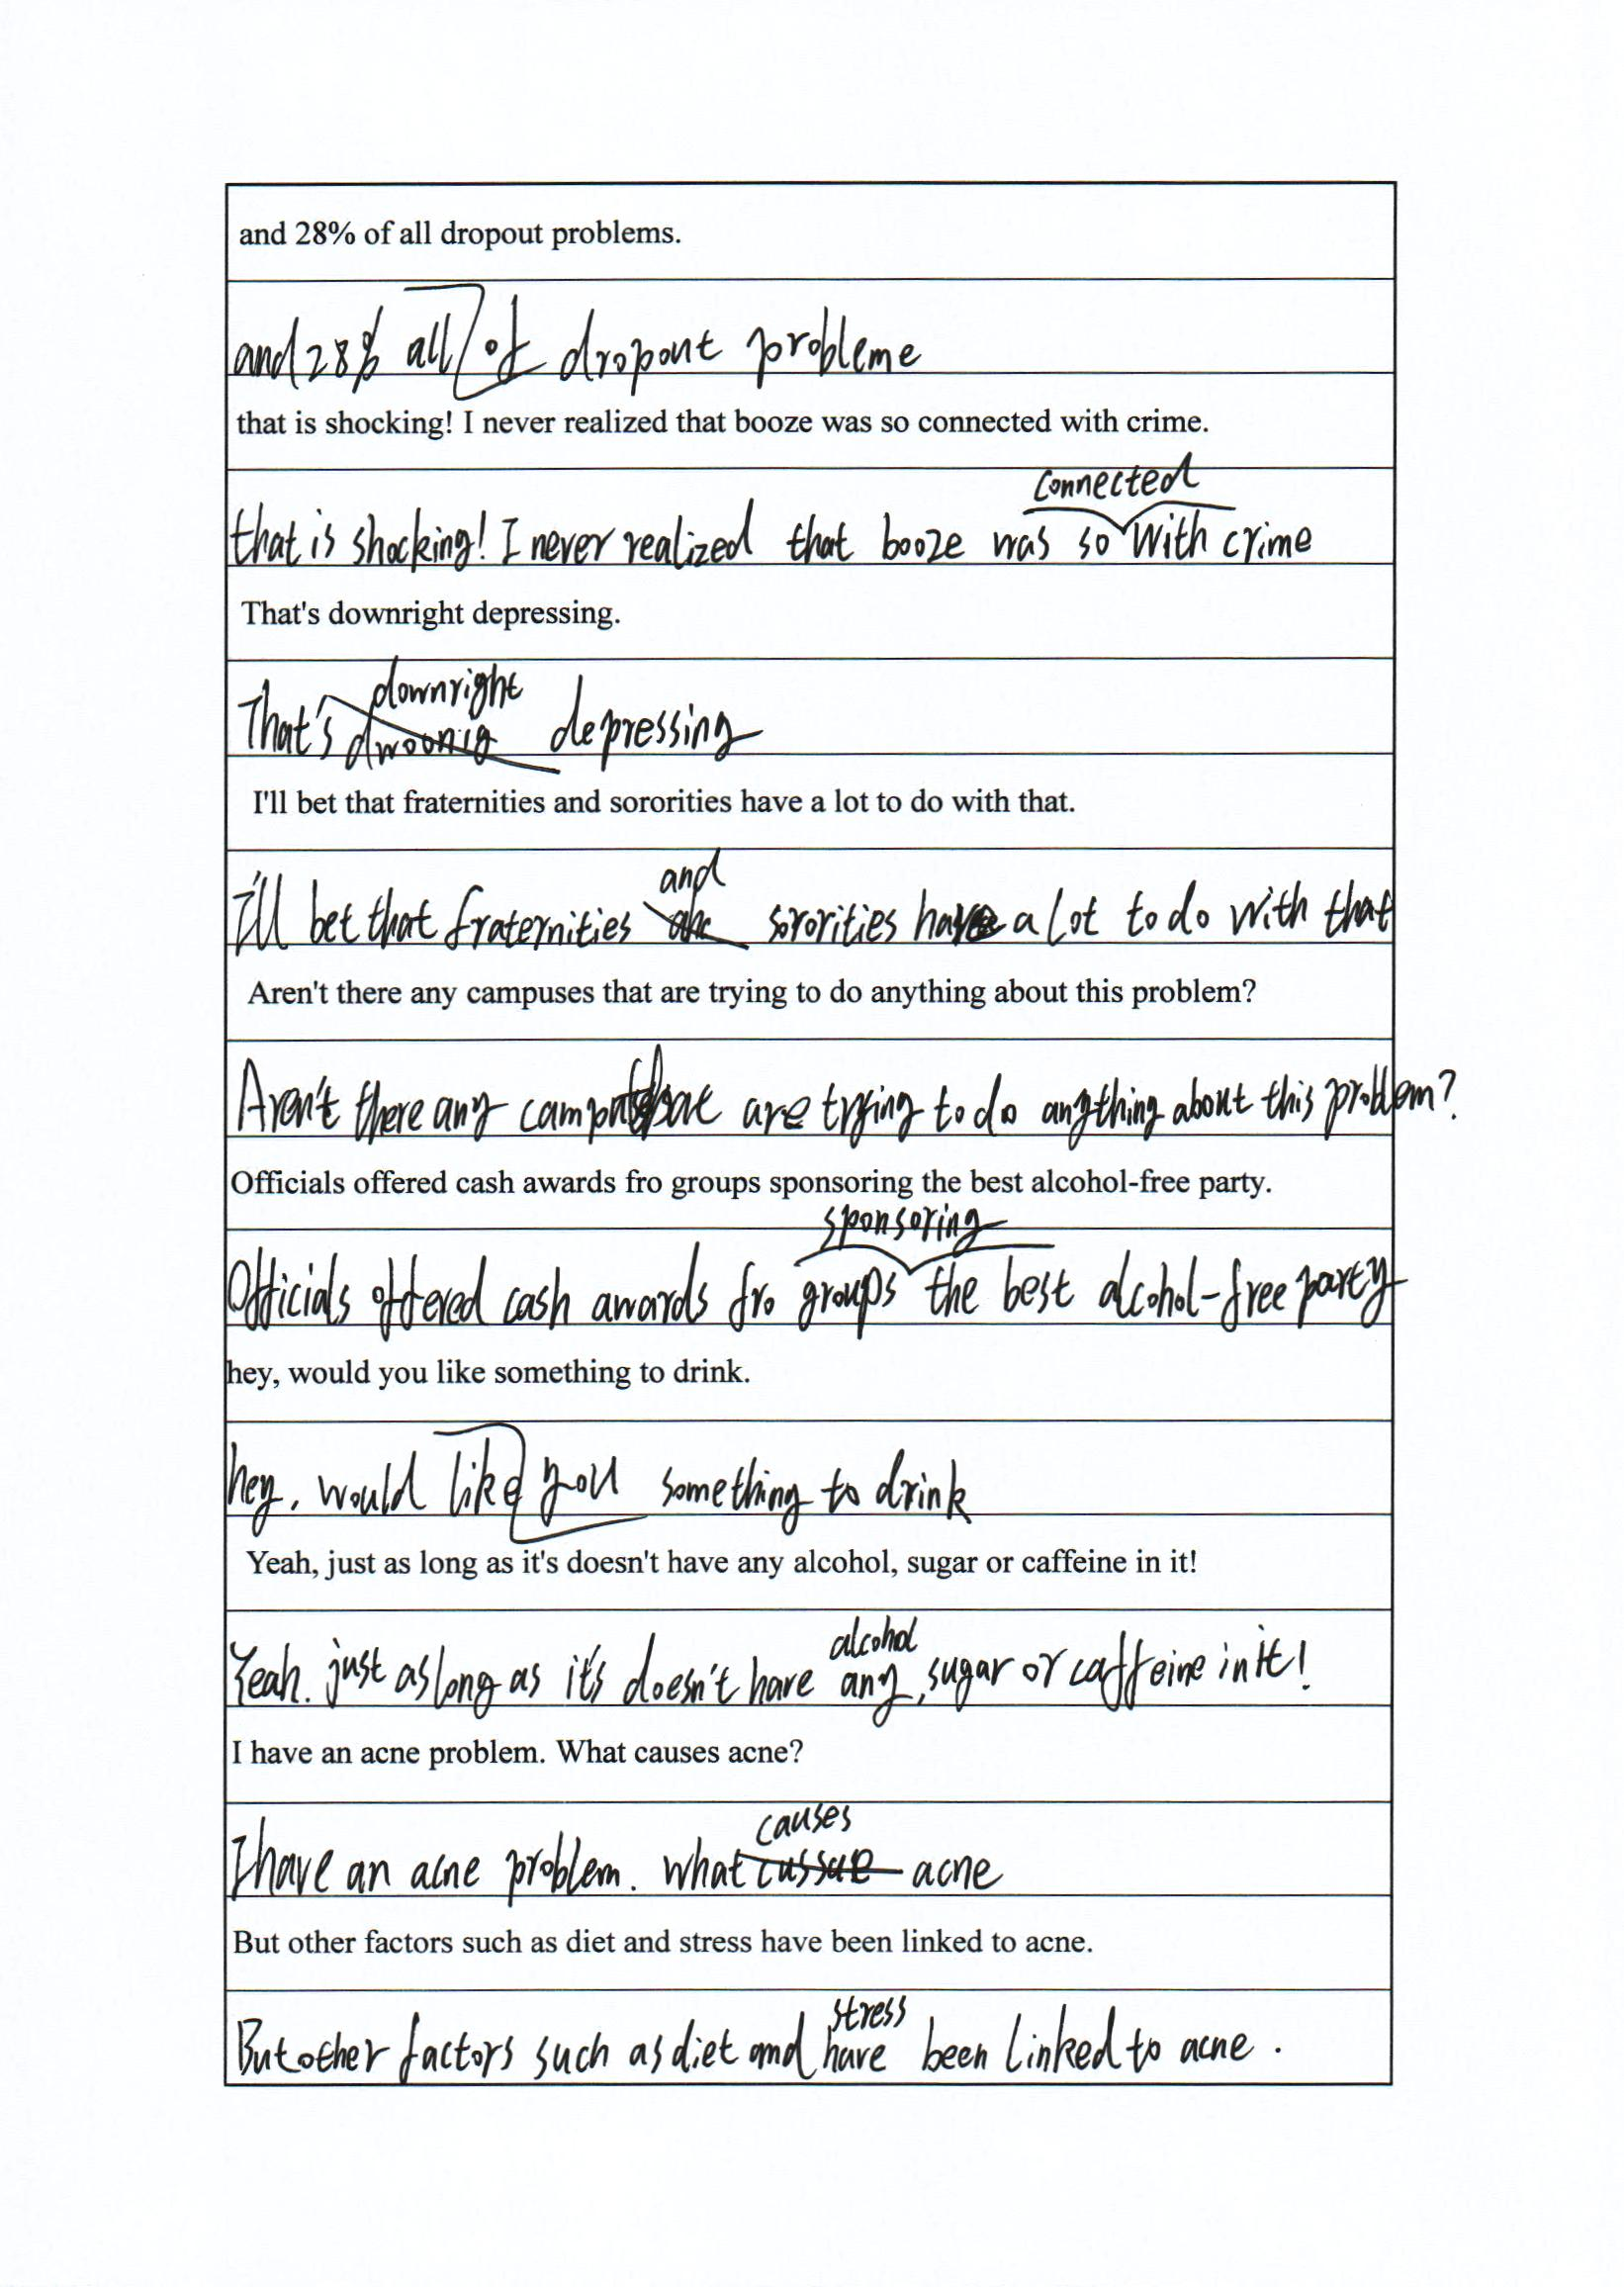 and 28% of all dropout problems.
and 28% all of dropout probleme
that is shocking! I never realized that booze was so connected with crime.
connected
that is shocking! I never realized that booze was so with crime
That's downright depressing.
downright
That's dwoonig depressing
I'll bet that fraternities and sororities have a lot to do with that.
and
I'll bet that fraternities sororities have a lot to do with that
Aren't there any campuses that are trying to do anything about this problem?
Aren't there any that are trying to do anything about this problem?
Officials offered cash awards fro groups sponsoring the best alcohol-free party.
sponsoring
Officials offered cash awards fro groups the best alcohol-free party
hey, would you like something to drink.
hey, would like you something to drink
Yeah, just as long as it's doesn't have any alcohol, sugar or caffeine in it!
alcohol
Yeah. just as long as it's doesn't have any, sugar or caffeine in it!
I have an acne problem. What causes acne?
causes
I have an acne problem. what cussue acne
But other factors such as diet and stress have been linked to acne.
stress
But other factors such as diet and have been linked to acne.